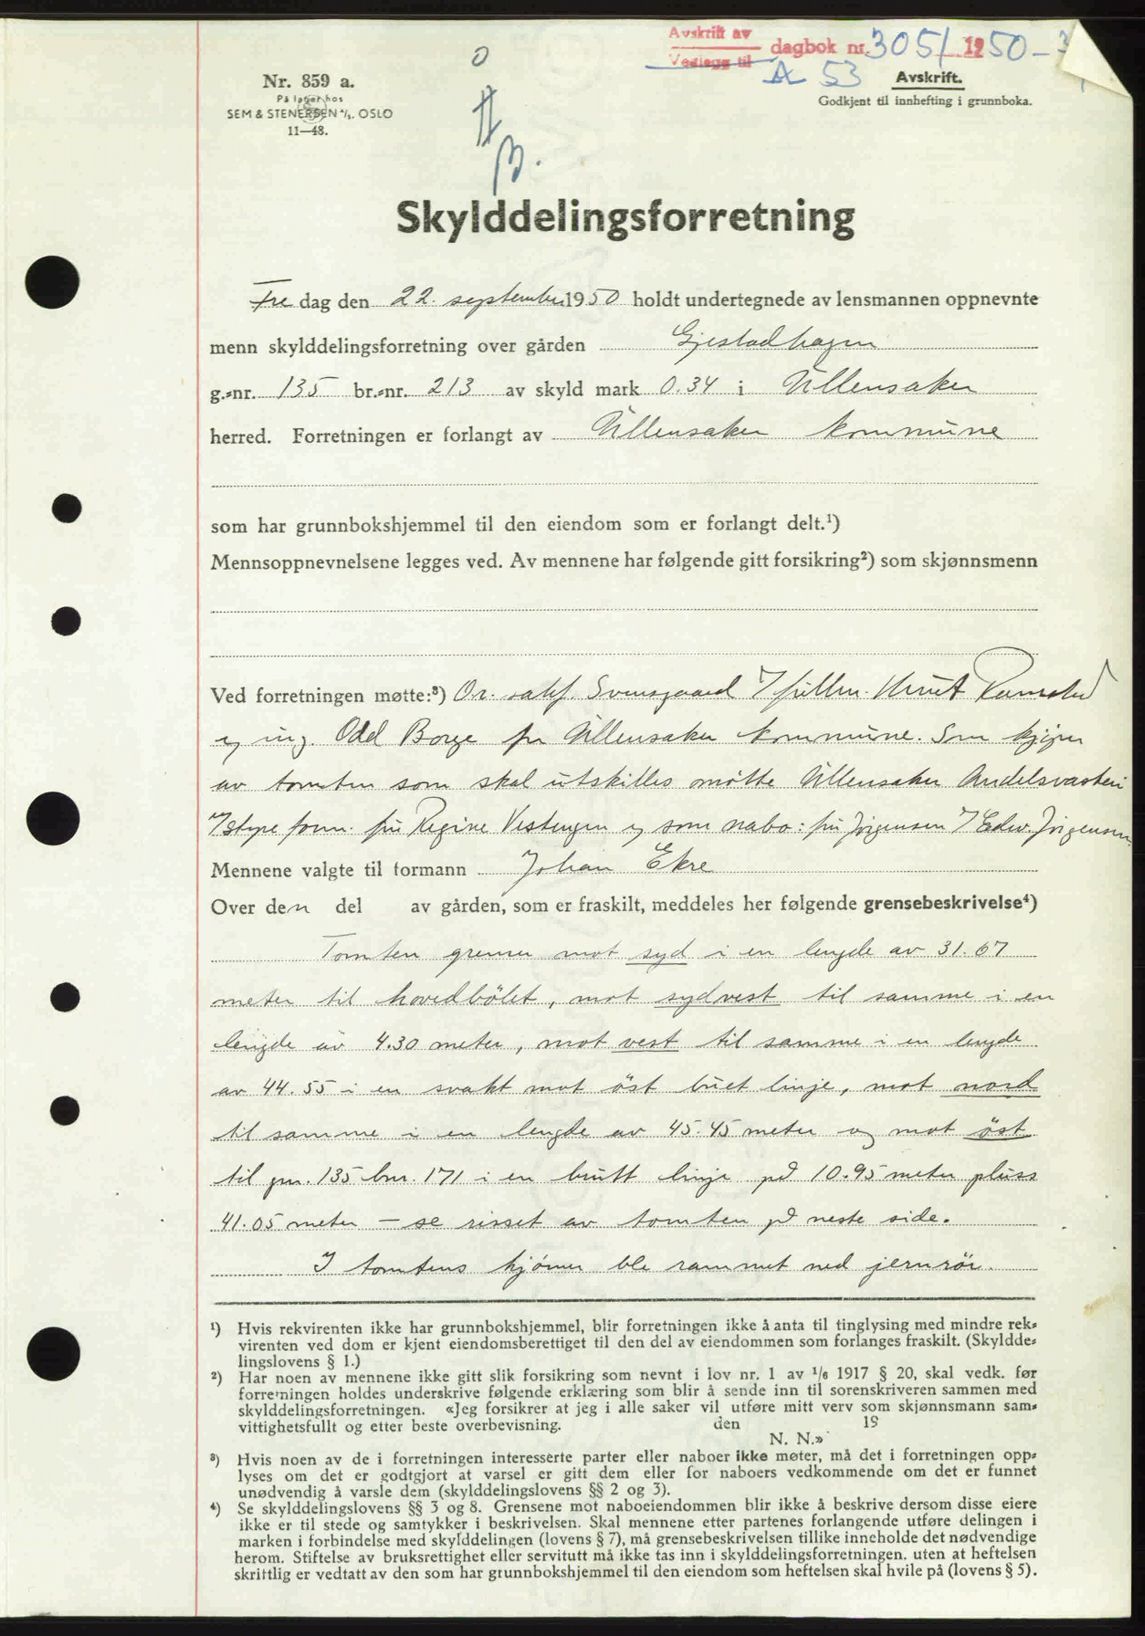 Avskrift av
Vedlegg til
dagbok nr. 3051 1950
A 53
Avskrift.
Godkjent til innhefting i grunnboka.
Nr. 859 a.
På lager hos
SEM & STENERSEN A/S. OSLO
11—48.
Skylddelingsforretning
Fre dag den 22. september 1950 holdt undertegnede av lensmannen oppnevnte
menn skylddelingsforretning over gården Gjestadhagen
g.-nr. 135 br.-nr. 213 av skyld mark 0.34 i Ullensaker
herred. Forretningen er forlangt av Ullensaker kommune
som har grunnbokshjemmel til den eiendom som er forlangt delt.¹)
Mennsoppnevnelsene legges ved. Av mennene har følgende gitt forsikring²) som skjønnsmenn
Ved forretningen møtte:³) O.r. sakf. Svensgaard v/ fullm. Knut Ramstad
og ing. Odd Borge for Ullensaker kommune. Som kjøper
av tomten som skal utskilles møtte Ullensaker Andelsvaskeri
v/ styreform. fru Regine Vestengen og som nabo: fru Jørgensen v/ Edw. Jørgensen.
Mennene valgte til formann Johan Ekre
Over den del av gården, som er fraskilt, meddeles her følgende grensebeskrivelse⁴)
Tomten grenser mot syd i en lengde av 31.67
meter til hovedbølet, mot sydvest til samme i en
lengde av 4.30 meter, mot vest til samme i en lengde
av 44.55 i en svakt mot öst buet linje, mot nord
til samme i en lengde av 45.45 meter og mot öst
til gnr. 135 bnr. 171 i en brutt linje på 10.95 meter pluss
41.05 meter — se risset av tomten på neste side.
I tomtens hjørner ble rammet ned jernrör.
¹) Hvis rekvirenten ikke har grunnbokshjemmel, blir forretningen ikke å anta til tinglysing med mindre rek-
virenten ved dom er kjent eiendomsberettiget til den del av eiendommen som forlanges fraskilt. (Skyldde-
lingslovens § 1.)
²) Har noen av mennene ikke gitt slik forsikring som nevnt i lov nr. 1 av 1/6 1917 § 20, skal vedk. før
forretningen holdes underskrive følgende erklæring som blir å sende inn til sorenskriveren sammen med
skylddelingsforretningen. «Jeg forsikrer at jeg i alle saker vil utføre mitt verv som skjønnsmann sam-
vittighetsfullt og etter beste overbevisning. den 19
N. N.»
³) Hvis noen av de i forretningen interesserte parter eller naboer ikke møter, må det i forretningen opp-
lyses om det er godtgjort at varsel er gitt dem eller for naboers vedkommende om det er funnet
unødvendig å varsle dem (skylddelingslovens §§ 2 og 3).
⁴) Se skylddelingslovens §§ 3 og 8. Grensene mot naboeiendommen blir ikke å beskrive dersom disse eiere
ikke er til stede og samtykker i beskrivelsen. Skal mennene etter partenes forlangende utføre delingen i
marken i forbindelse med skylddelingen (lovens § 7), må grensebeskrivelsen tillike inneholde det nødvendige
herom. Stiftelse av bruksrettighet eller servitutt må ikke tas inn i skylddelingsforretningen, uten at heftelsen
skriftlig er vedtatt av den som har grunnbokshjemmel til den eiendom som heftelsen skal hvile på (lovens § 5).